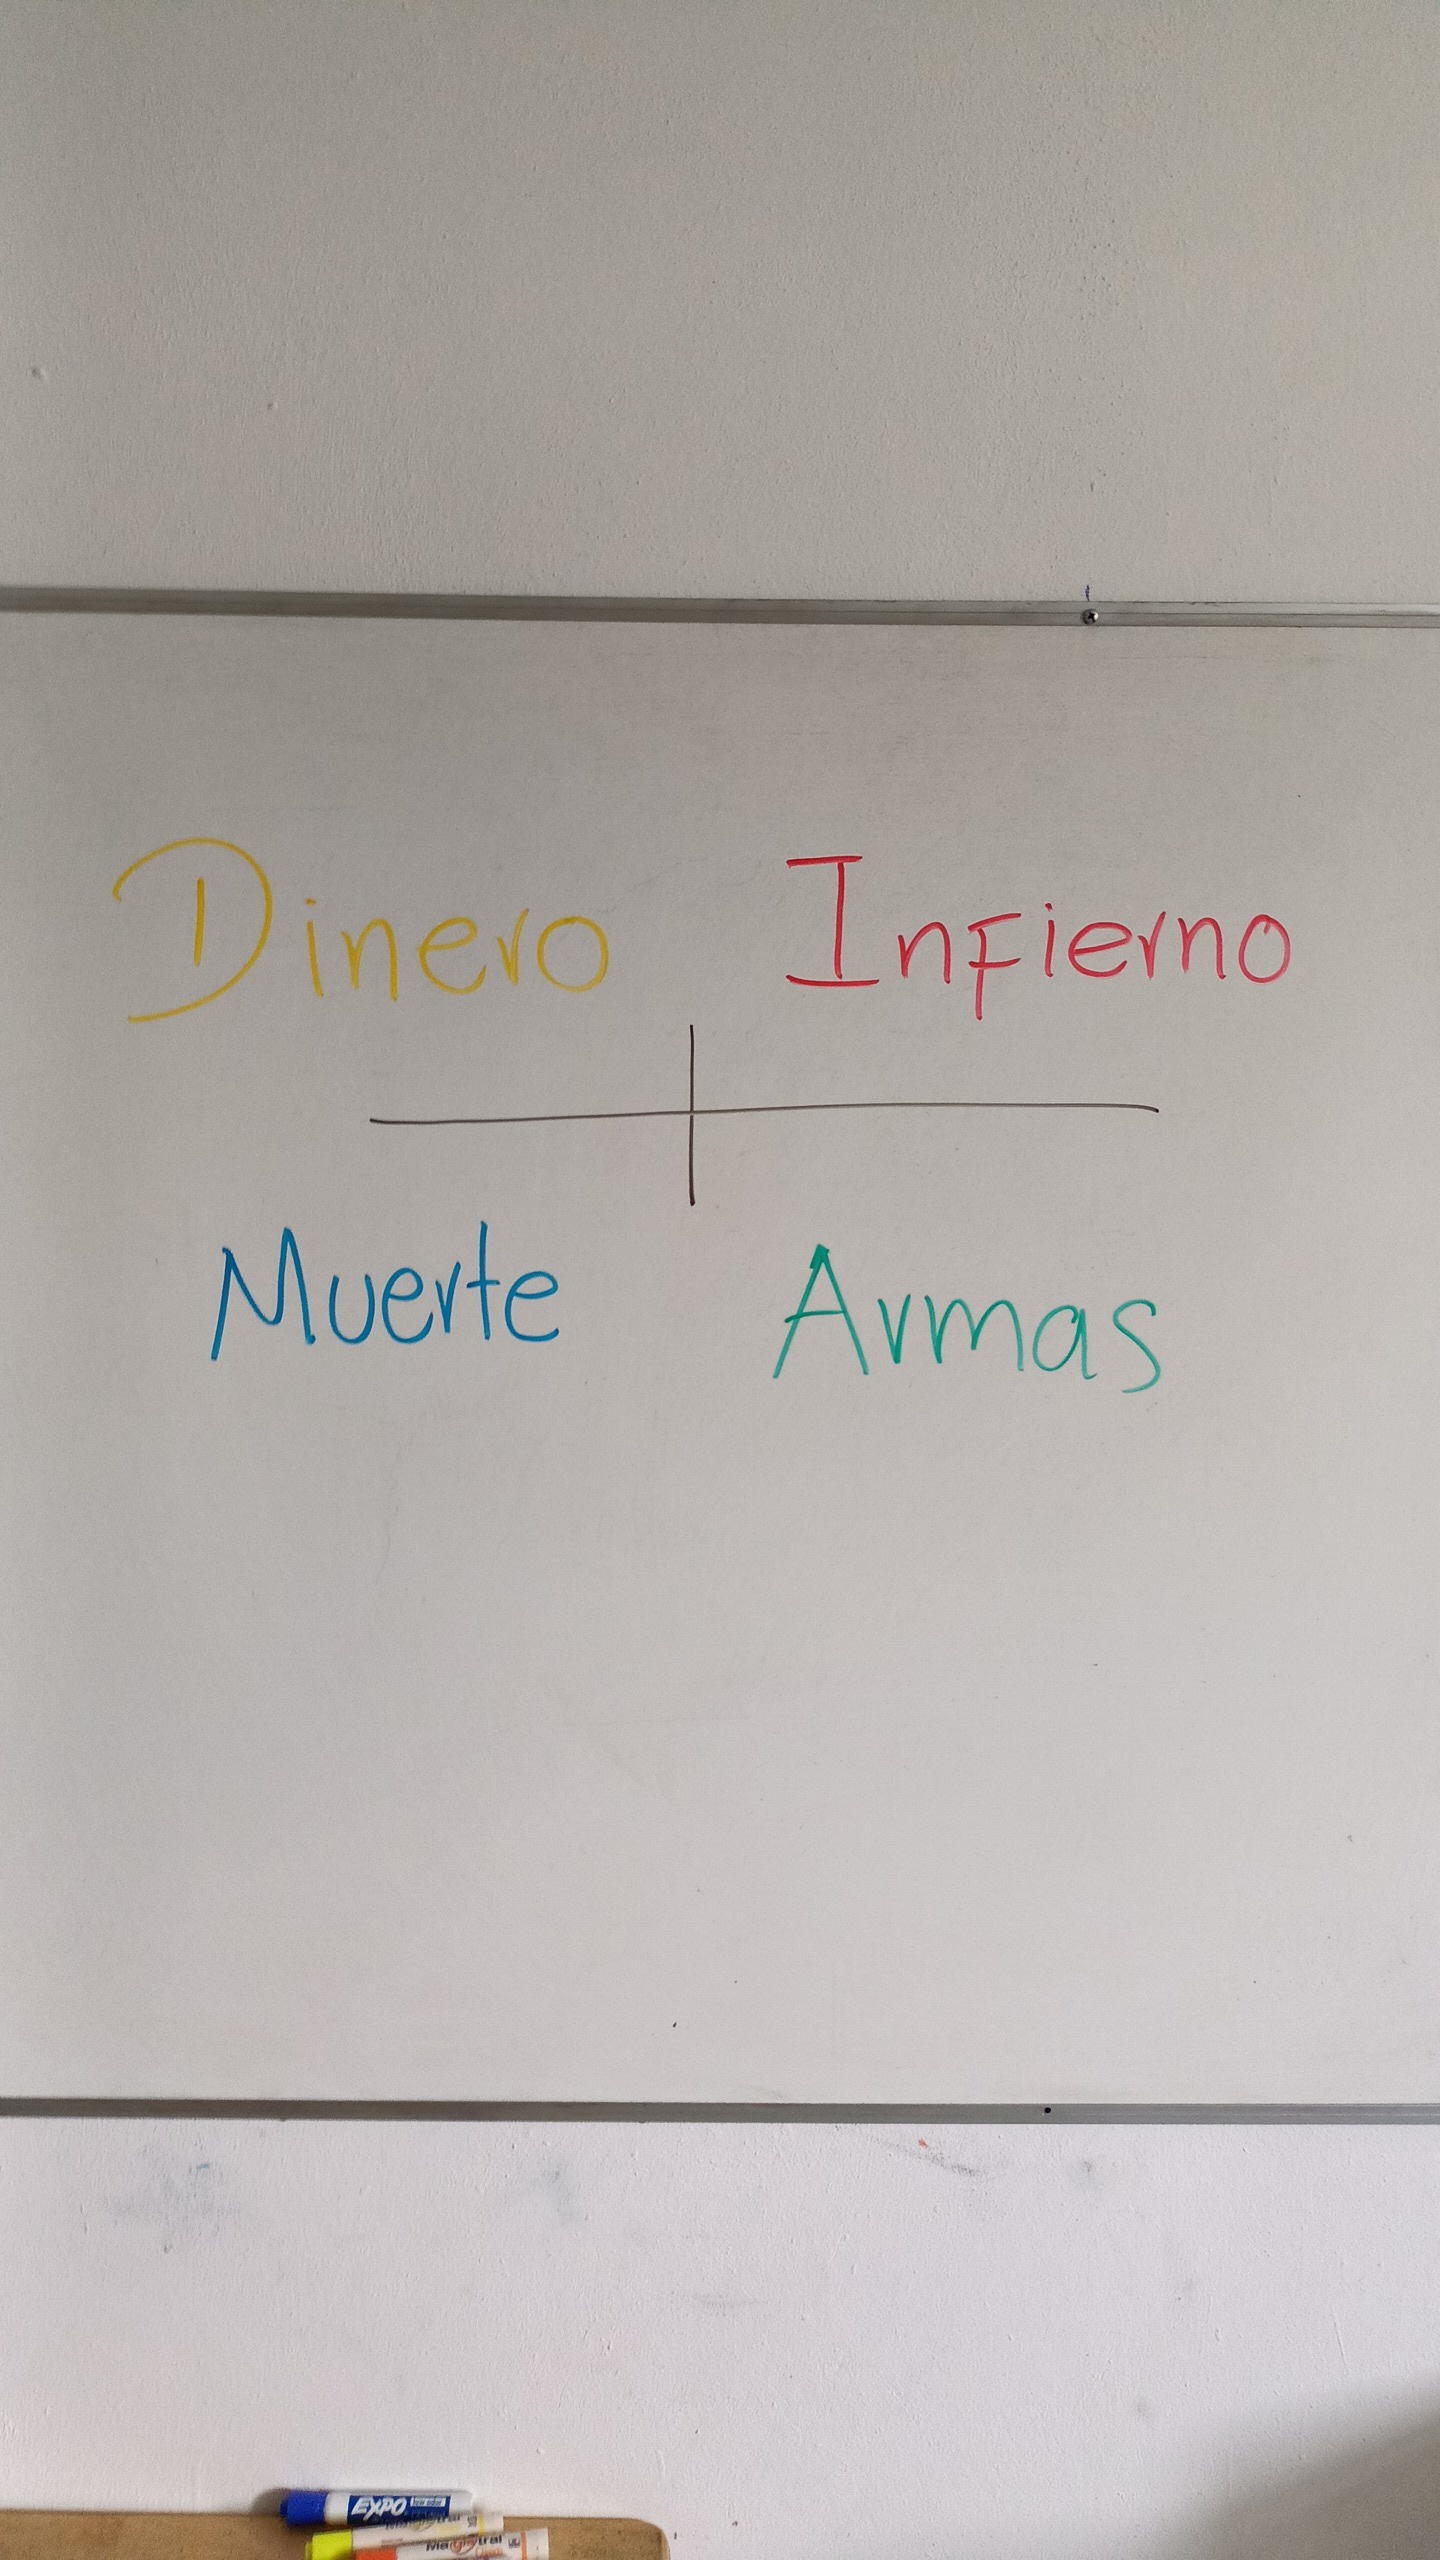 Dinero Infierno
Muerte Armas
EXPO
Magistral
Magistral